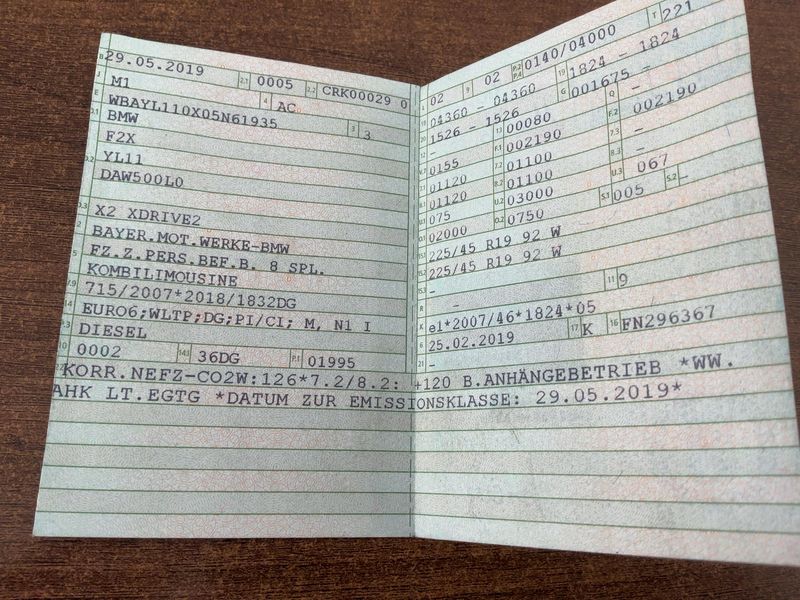 B 29.05.2019 2.1 0005 2.2 CRK00029 0
J M1 4 AC
E WBAYL110X05N61935 3 3
D.1 BMW
F2X
D.2 YL11
DAW500L0
D.3 X2 XDRIVE2
2 BAYER.MOT.WERKE-BMW
5 FZ.Z.PERS.BEF.B. 8 SPL.
KOMBILIMOUSINE
715/2007*2018/1832DG
14 EURO6;WLTP;DG;PI/CI; M, N1 I
P.3 DIESEL
10 0002 14.1 36DG P.1 01995
22 KORR.NEFZ-CO2W:126*7.2/8.2: +120 B.ANHÄNGEBETRIEB *WW.
AHK LT.EGTG *DATUM ZUR EMISSIONSKLASSE: 29.05.2019*
L 02 9 02 P.2 P.4 0140/04000 T 221
18 04360 - 04360 19 1824 - 1824
20 1526 - 1526 G 001675 -
12 - 13 00080 Q -
V.7 0155 F.1 002190 F.2 002190
7.1 01120 7.2 01100 7.3 -
8.1 01120 8.2 01100 8.3 -
U.1 075 U.2 03000 U.3 067
O.1 02000 O.2 0750 S.1 005 S.2 -
15.1 225/45 R19 92 W
15.2 225/45 R19 92 W
15.3 -
R - 11 9
K e1*2007/46*1824*05
6 25.02.2019 17 K 16 FN296367
21 -